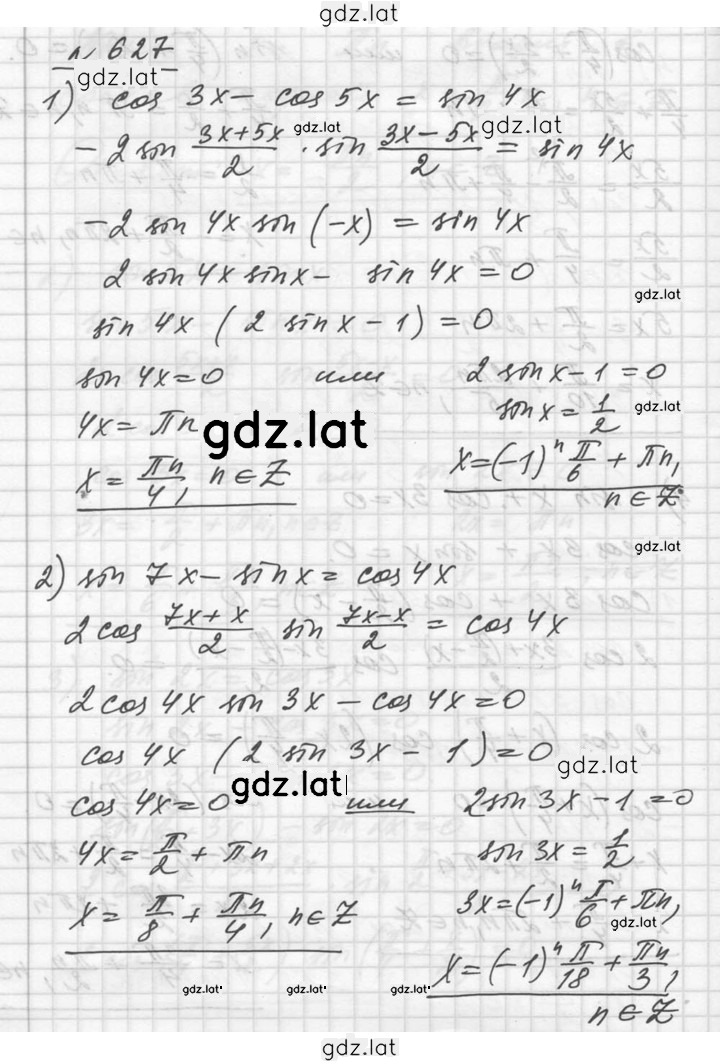 gdz.lat
№ 627
gdz.lat
1) cos 3x − cos 5x = sin 4x
gdz.lat gdz.lat
−2 sin (3x+5x)/2 · sin (3x−5x)/2 = sin 4x
−2 sin 4x sin (−x) = sin 4x
2 sin 4x sin x − sin 4x = 0
gdz.lat
sin 4x (2 sin x − 1) = 0
sin 4x = 0 или 2 sin x − 1 = 0
4x = πn sin x = 1/2
gdz.lat gdz.lat
x = πn/4, n ∈ Z x = (−1)^n π/6 + πn,
n ∈ Z
gdz.lat
2) sin 7x − sin x = cos 4x
2 cos (7x+x)/2 sin (7x−x)/2 = cos 4x
2 cos 4x sin 3x − cos 4x = 0
cos 4x (2 sin 3x − 1) = 0
gdz.lat gdz.lat
cos 4x = 0 или 2 sin 3x − 1 = 0
4x = π/2 + πn sin 3x = 1/2
x = π/8 + πn/4, n ∈ Z 3x = (−1)^n π/6 + πn,
gdz.lat
x = (−1)^n π/18 + πn/3,
gdz.lat gdz.lat gdz.lat
n ∈ Z
gdz.lat